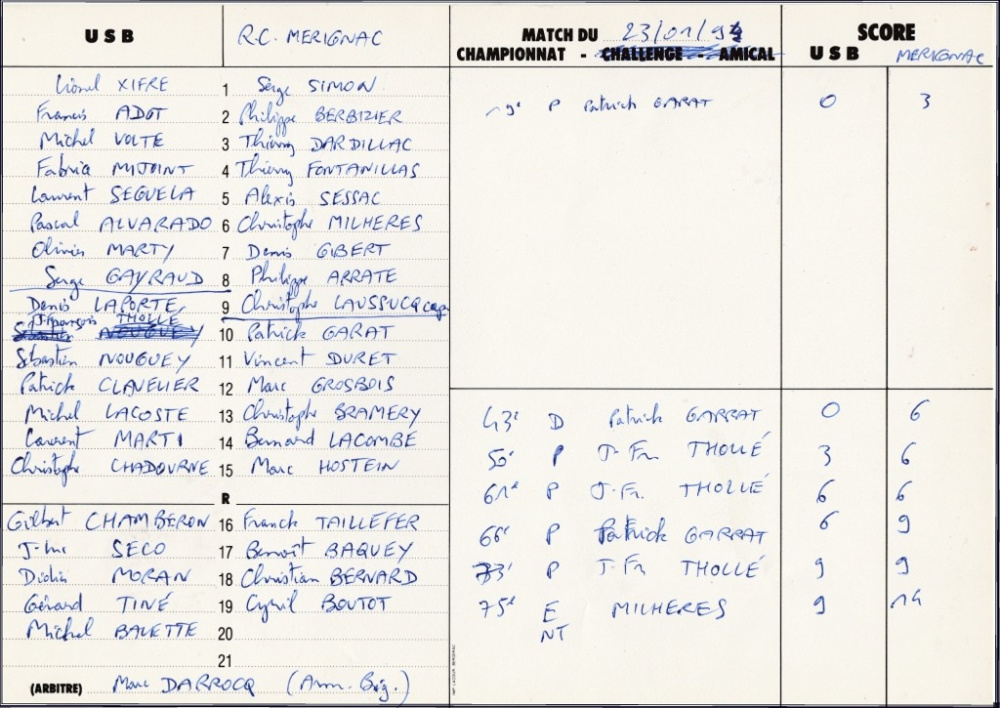 USB R.C. MERIGNAC MATCH DU 23/01/94 SCORE
CHAMPIONNAT - CHALLENGE - AMICAL USB MERIGNAC
Lionel XIFRE 1 Serge SIMON
Francis ADOT 2 Philippe BERBIZIER
Michel VOLTE 3 Thierry DARDILLAC
Fabrice MIJOINT 4 Thierry FONTANILLAS
Laurent SEGUELA 5 Alexis SESSAC
Pascal ALVARADO 6 Christophe MILHERES
Olivier MARTY 7 Denis GIBERT
Serge GAYRAUD 8 Philippe ARRATE
Denis LAPORTE 9 Christophe LAUSSUCQ cap
J. François THOLLÉ
Sébastien NOUGUEY 10 Patrick GARAT
Sébastien NOUGUEY 11 Vincent DURET
Patrick CLAVELIER 12 Marc GROSBOIS
Michel LACOSTE 13 Christophe BRAMERY
Laurent MARTI 14 Bernard LACOMBE
Christophe CHADOURNE 15 Marc HOSTEIN
R
Gilbert CHAMBERON 16 Franck TAILLEFER
J-luc SECO 17 Benoît BAQUEY
Didier MORAN 18 Christian BERNARD
Gérard TINÉ 19 Cyril BOUTOT
Michel BALETTE 20
21
(ARBITRE) Marc DARROCQ (Arm. Big.)
19' P Patrick GARAT 0 3
43' D Patrick GARRAT 0 6
50' P J-Fr. THOLLÉ 3 6
61' P J.Fr. THOLLÉ 6 6
66' P Patrick GARRAT 6 9
73' P J-Fr THOLLÉ 9 9
75' E MILHERES 9 14
NT